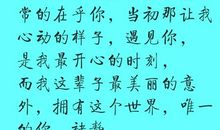 常的在乎你，当初那让我
心动的样子，遇见你，
是我最开心的时刻，
而我这辈子最美丽的意
外，拥有这个世界，唯一
的你，